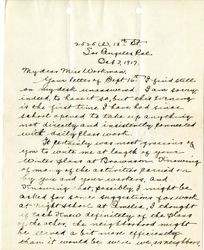 2525 W. 18th St.
Los Angeles Cal.
Oct. 7, 1917.
My dear Miss Workman,
Your letter of Sept 16th I find still
on my desk unanswered. I am sorry
indeed, to have it so, but this evening
is the first time I have had since
school opened to take up anything
not directly and insistently connected
with daily class work.
It certainly was most gracious of
you to write me at length of your
winter plans at Brownson. Knowing
of many of the activities carried on
by you and your workers, and
knowing that, possibly, I might be
asked for some suggestions for work
at night school at Amelia, I thought
if each knew definitely of the plans
of the other, the neighborhood might
be served to far more efficiently
than it would be were we